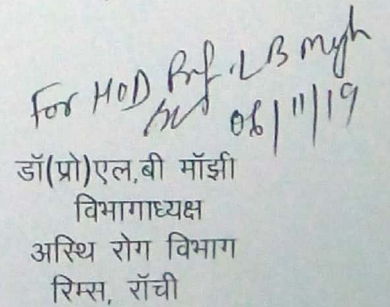 For HOD Prof. L B Majhi
06/11/19
डॉ(प्रो)एल.बी मॉझी
विभागाध्यक्ष
अस्थि रोग विभाग
रिम्स, रॉची